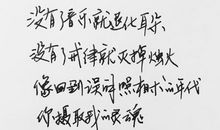 没有音乐就退化耳朵
没有戒律就灭掉烛火
像回到误时照相的年代
你摄取我的灵魂